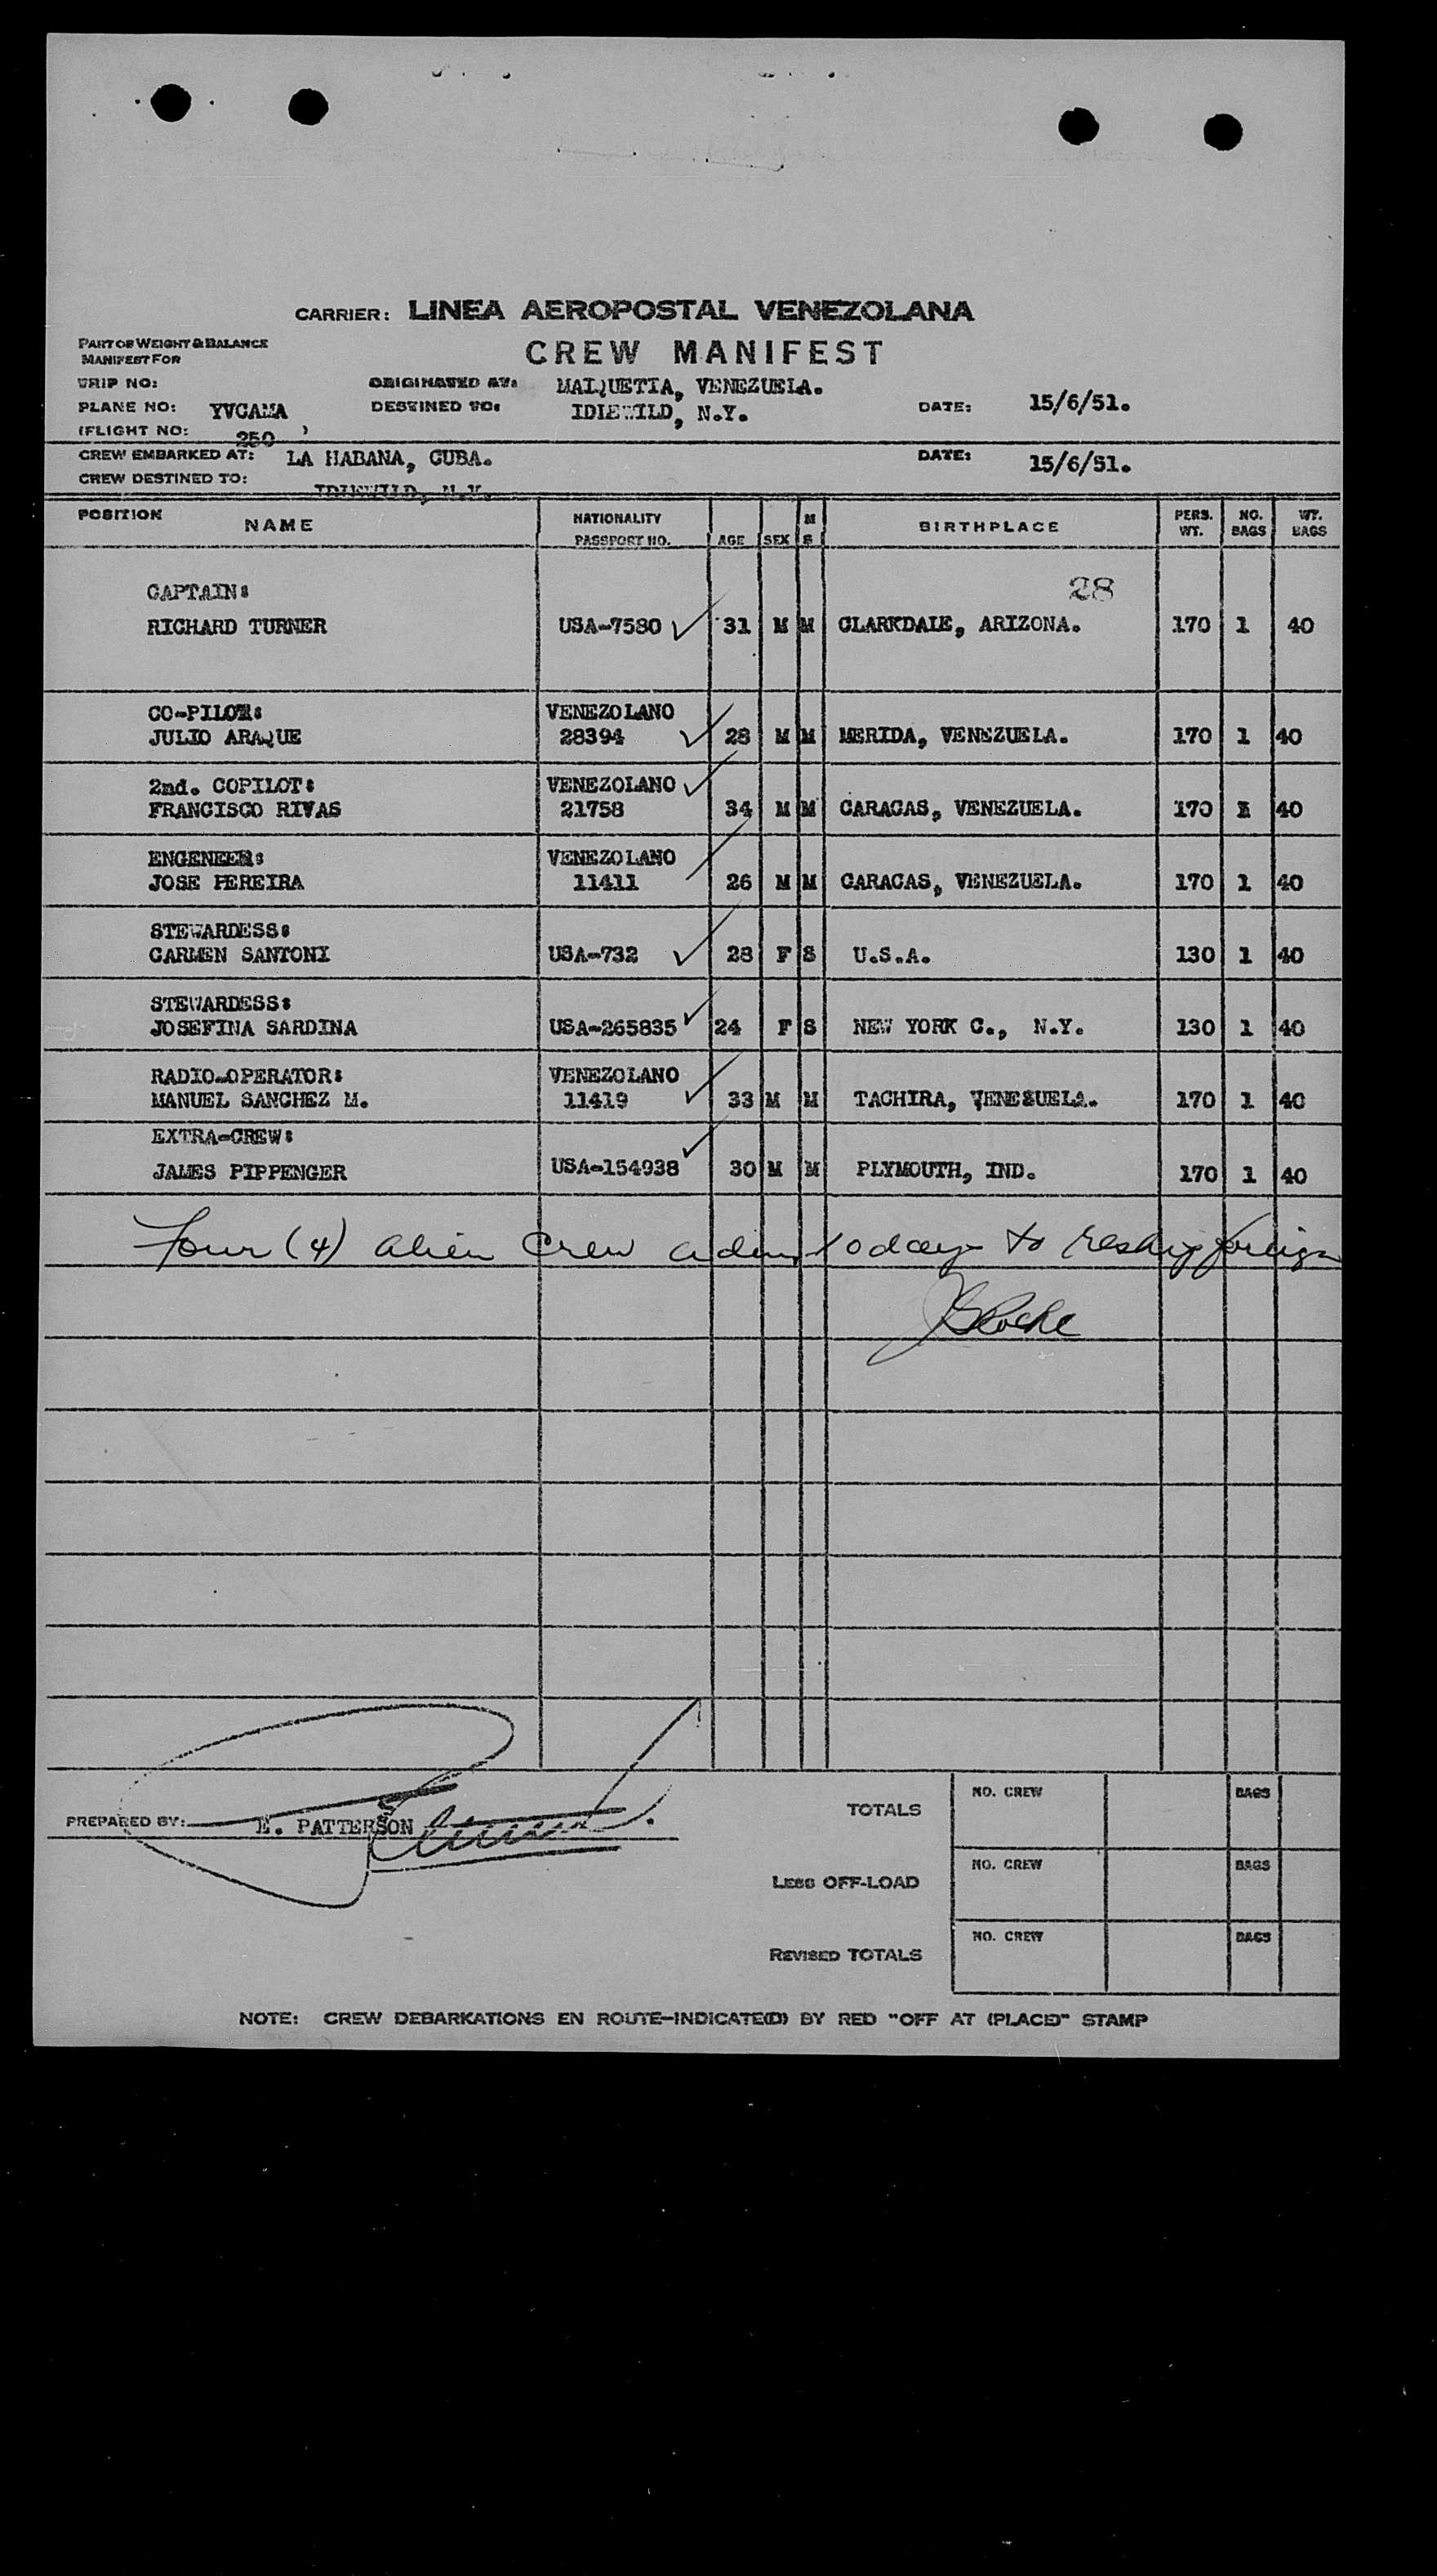 CARRIER: LINEA AEROPOSTAL VENEZOLANA
PART OF WEIGHT & BALANCE
MANIFEST FOR
CREW MANIFEST
TRIP NO: ORIGINATED AT: MAIQUETIA, VENEZUELA.
PLANE NO: YVCAMA DESTINED TO: IDLEWILD, N.Y. DATE: 15/6/51.
(FLIGHT NO: 250 )
CREW EMBARKED AT: LA HABANA, CUBA. DATE: 15/6/51.
CREW DESTINED TO: IDLEWILD, N.Y.
POSITION NAME NATIONALITY PASSPORT NO. AGE SEX M S BIRTHPLACE PERS. WT. NO. BAGS WT. BAGS
CAPTAIN: 28
RICHARD TURNER USA-7580 31 M M CLARKDALE, ARIZONA. 170 1 40
CO-PILOT: VENEZOLANO
JULIO ARAQUE 28394 28 M M MERIDA, VENEZUELA. 170 1 40
2nd. COPILOT: VENEZOLANO
FRANCISCO RIVAS 21758 34 M M CARACAS, VENEZUELA. 170 1 40
ENGENEER: VENEZOLANO
JOSE PEREIRA 11411 26 M M CARACAS, VENEZUELA. 170 1 40
STEWARDESS:
CARMEN SANTONI USA-732 28 F S U.S.A. 130 1 40
STEWARDESS:
JOSEFINA SARDINA USA-265835 24 F S NEW YORK C., N.Y. 130 1 40
RADIO-OPERATOR: VENEZOLANO
MANUEL SANCHEZ M. 11419 33 M M TACHIRA, VENEZUELA. 170 1 40
EXTRA-CREW:
JAMES PIPPENGER USA-154938 30 M M PLYMOUTH, IND. 170 1 40
Four (4) alien crew adm today to reship foreign
PREPARED BY: E. PATTERSON
TOTALS NO. CREW BAGS
LESS OFF-LOAD NO. CREW BAGS
REVISED TOTALS NO. CREW BAGS
NOTE: CREW DEBARKATIONS EN ROUTE-INDICATE(D) BY RED "OFF AT (PLACE)" STAMP